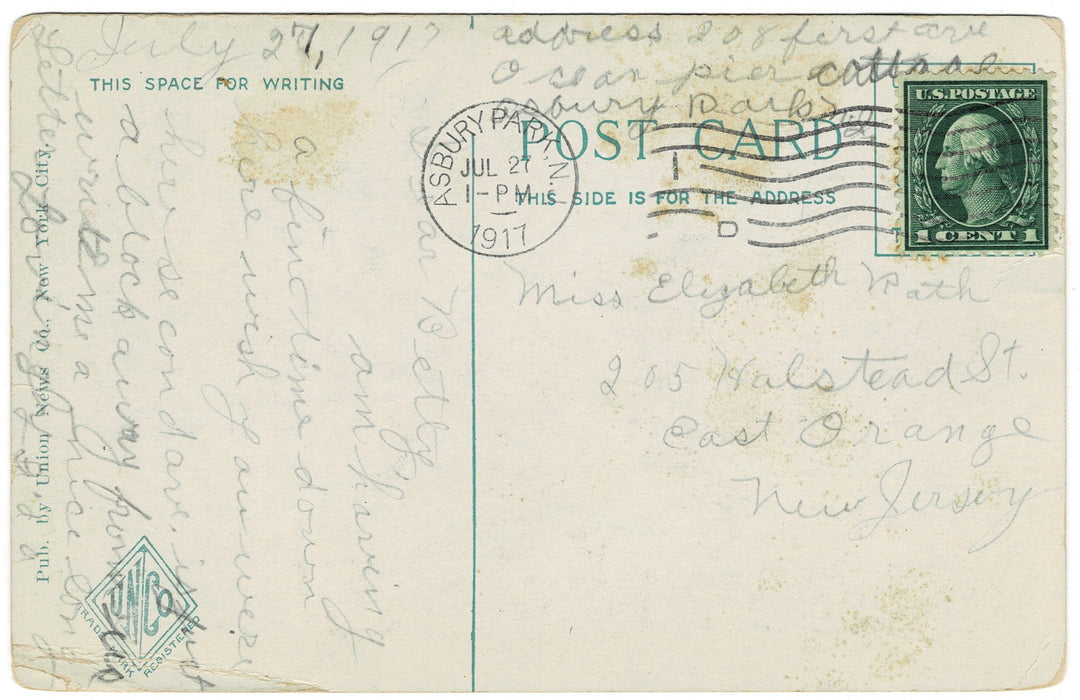 July 27, 1917
THIS SPACE FOR WRITING
Dear Betty
am having
a fine time down
here wish you were
here second ave. is just
a block away from us
write me a nice long
letter
Pub. by Union News Co., New York City.
UNCO
TRADE MARK REGISTERED
address 208 first ave
Ocean pier cottage
asbury Park
POST CARD
THIS SIDE IS FOR THE ADDRESS
ASBURY PARK, N.J.
JUL 27
1-PM
1917
D
U.S. POSTAGE
1 CENT 1
Miss Elizabeth Rath
205 Halstead St.
East Orange
New Jersey